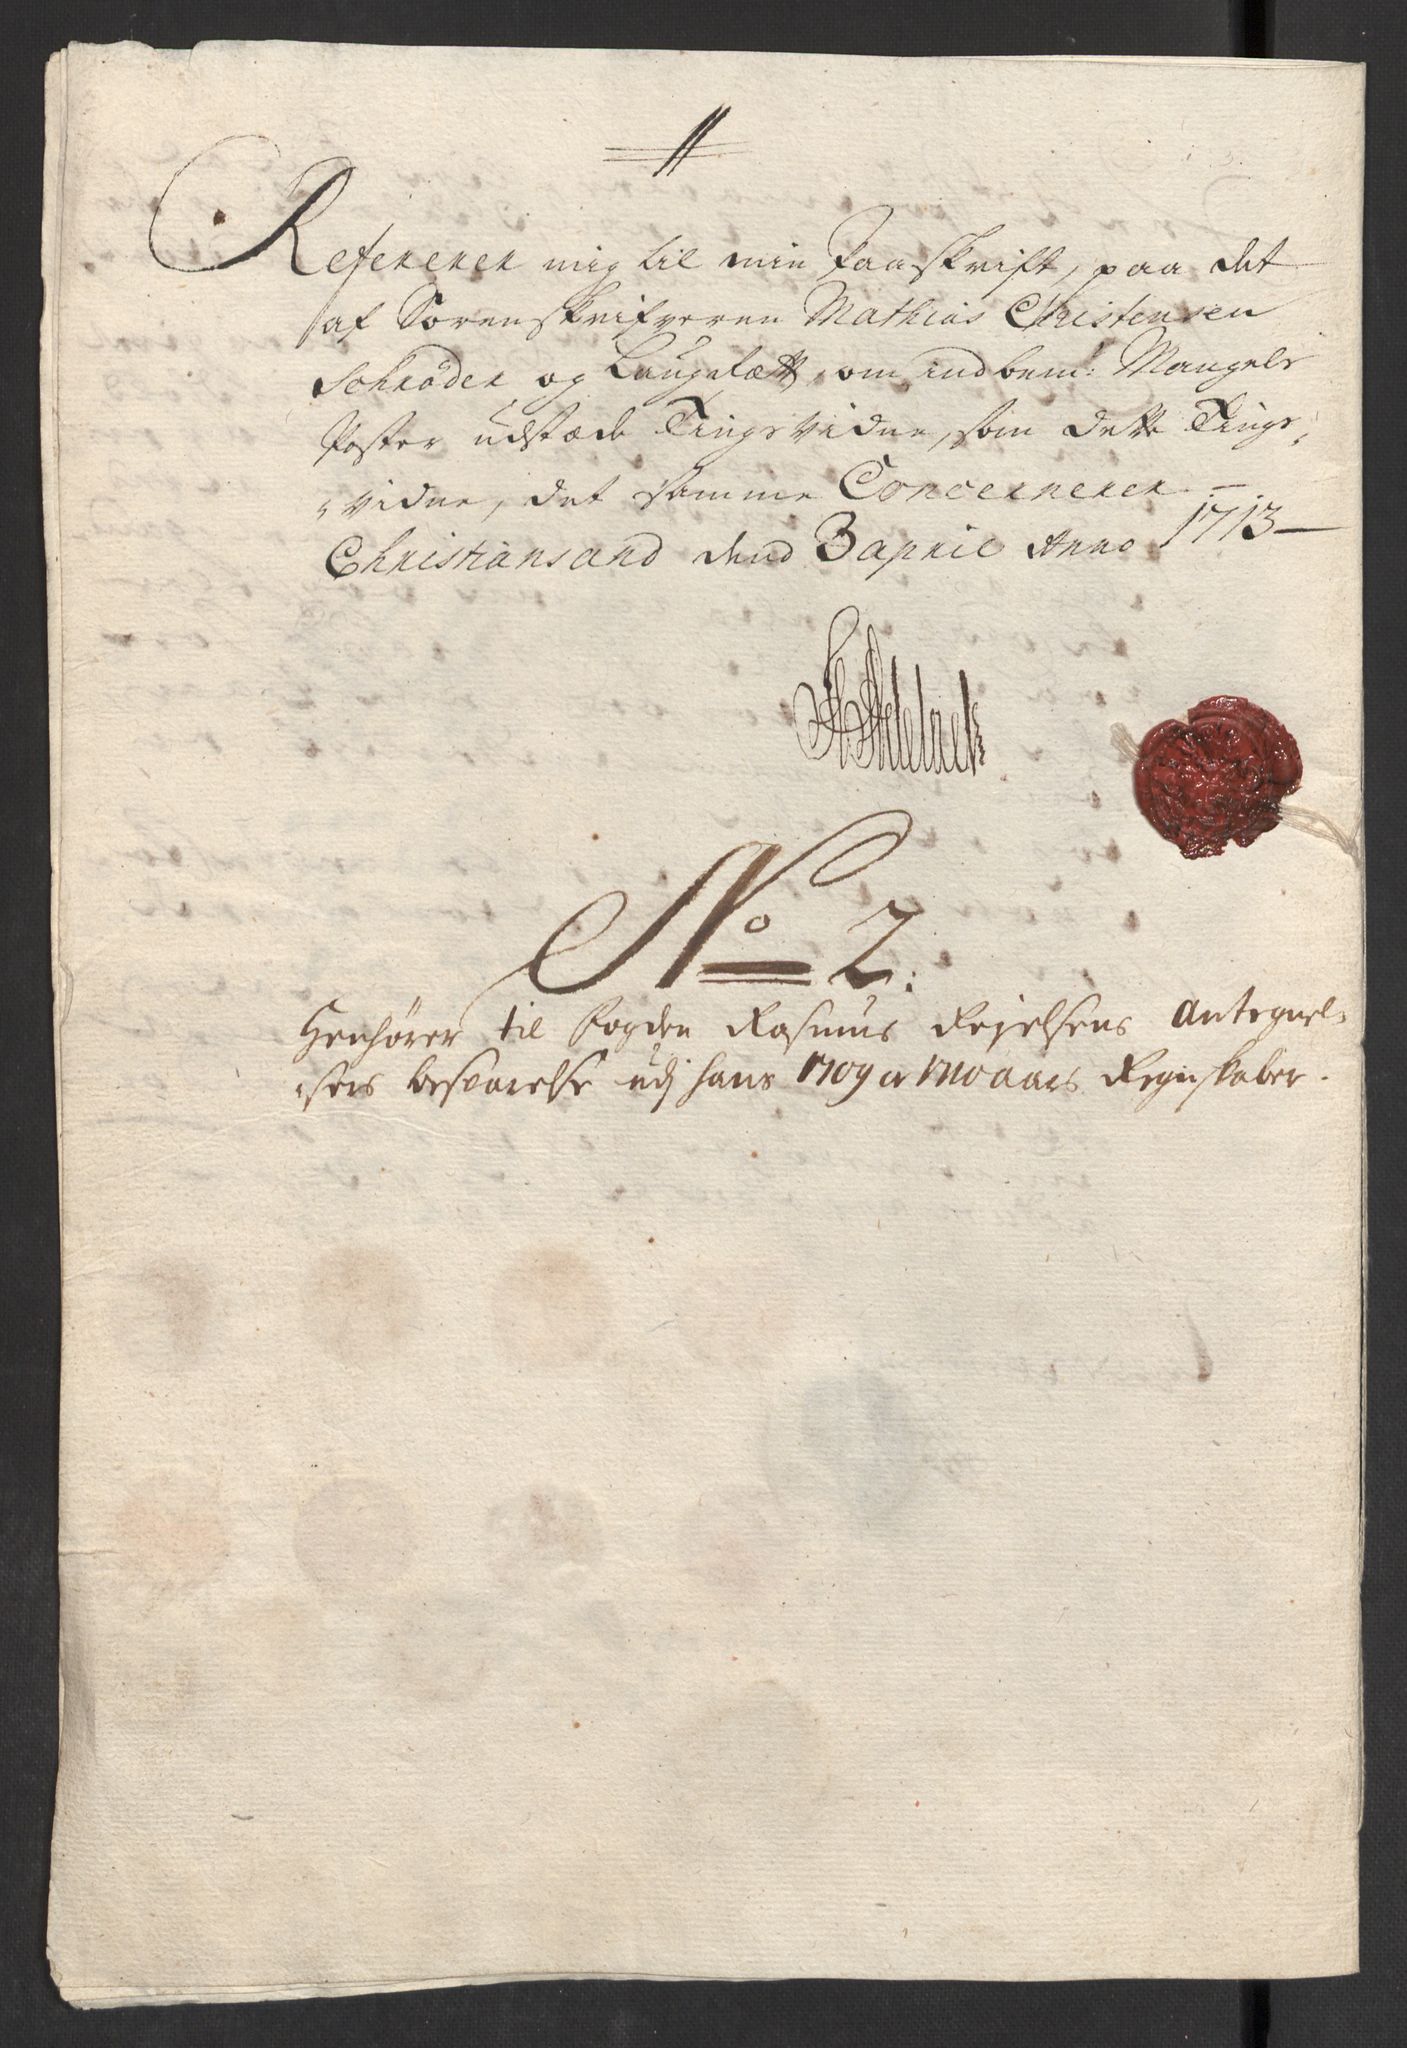 Refererer mig til min Paaskrift, paa det
af Sorenskrifveren Mathias Christensen
Schrøder og Laugrett, om indbem: Mangels
Poster udstæde Tingsvidne, som dette Tings,
,vidne, det samme Concernerer –
Christiansand dend 3 april Anno 1713 –
No 2:
Henhører til Fogden Rasmus Rejelsens Antegnel,
,sers besvarelse udj hans 1709 et 1710 aars Regnskaber.